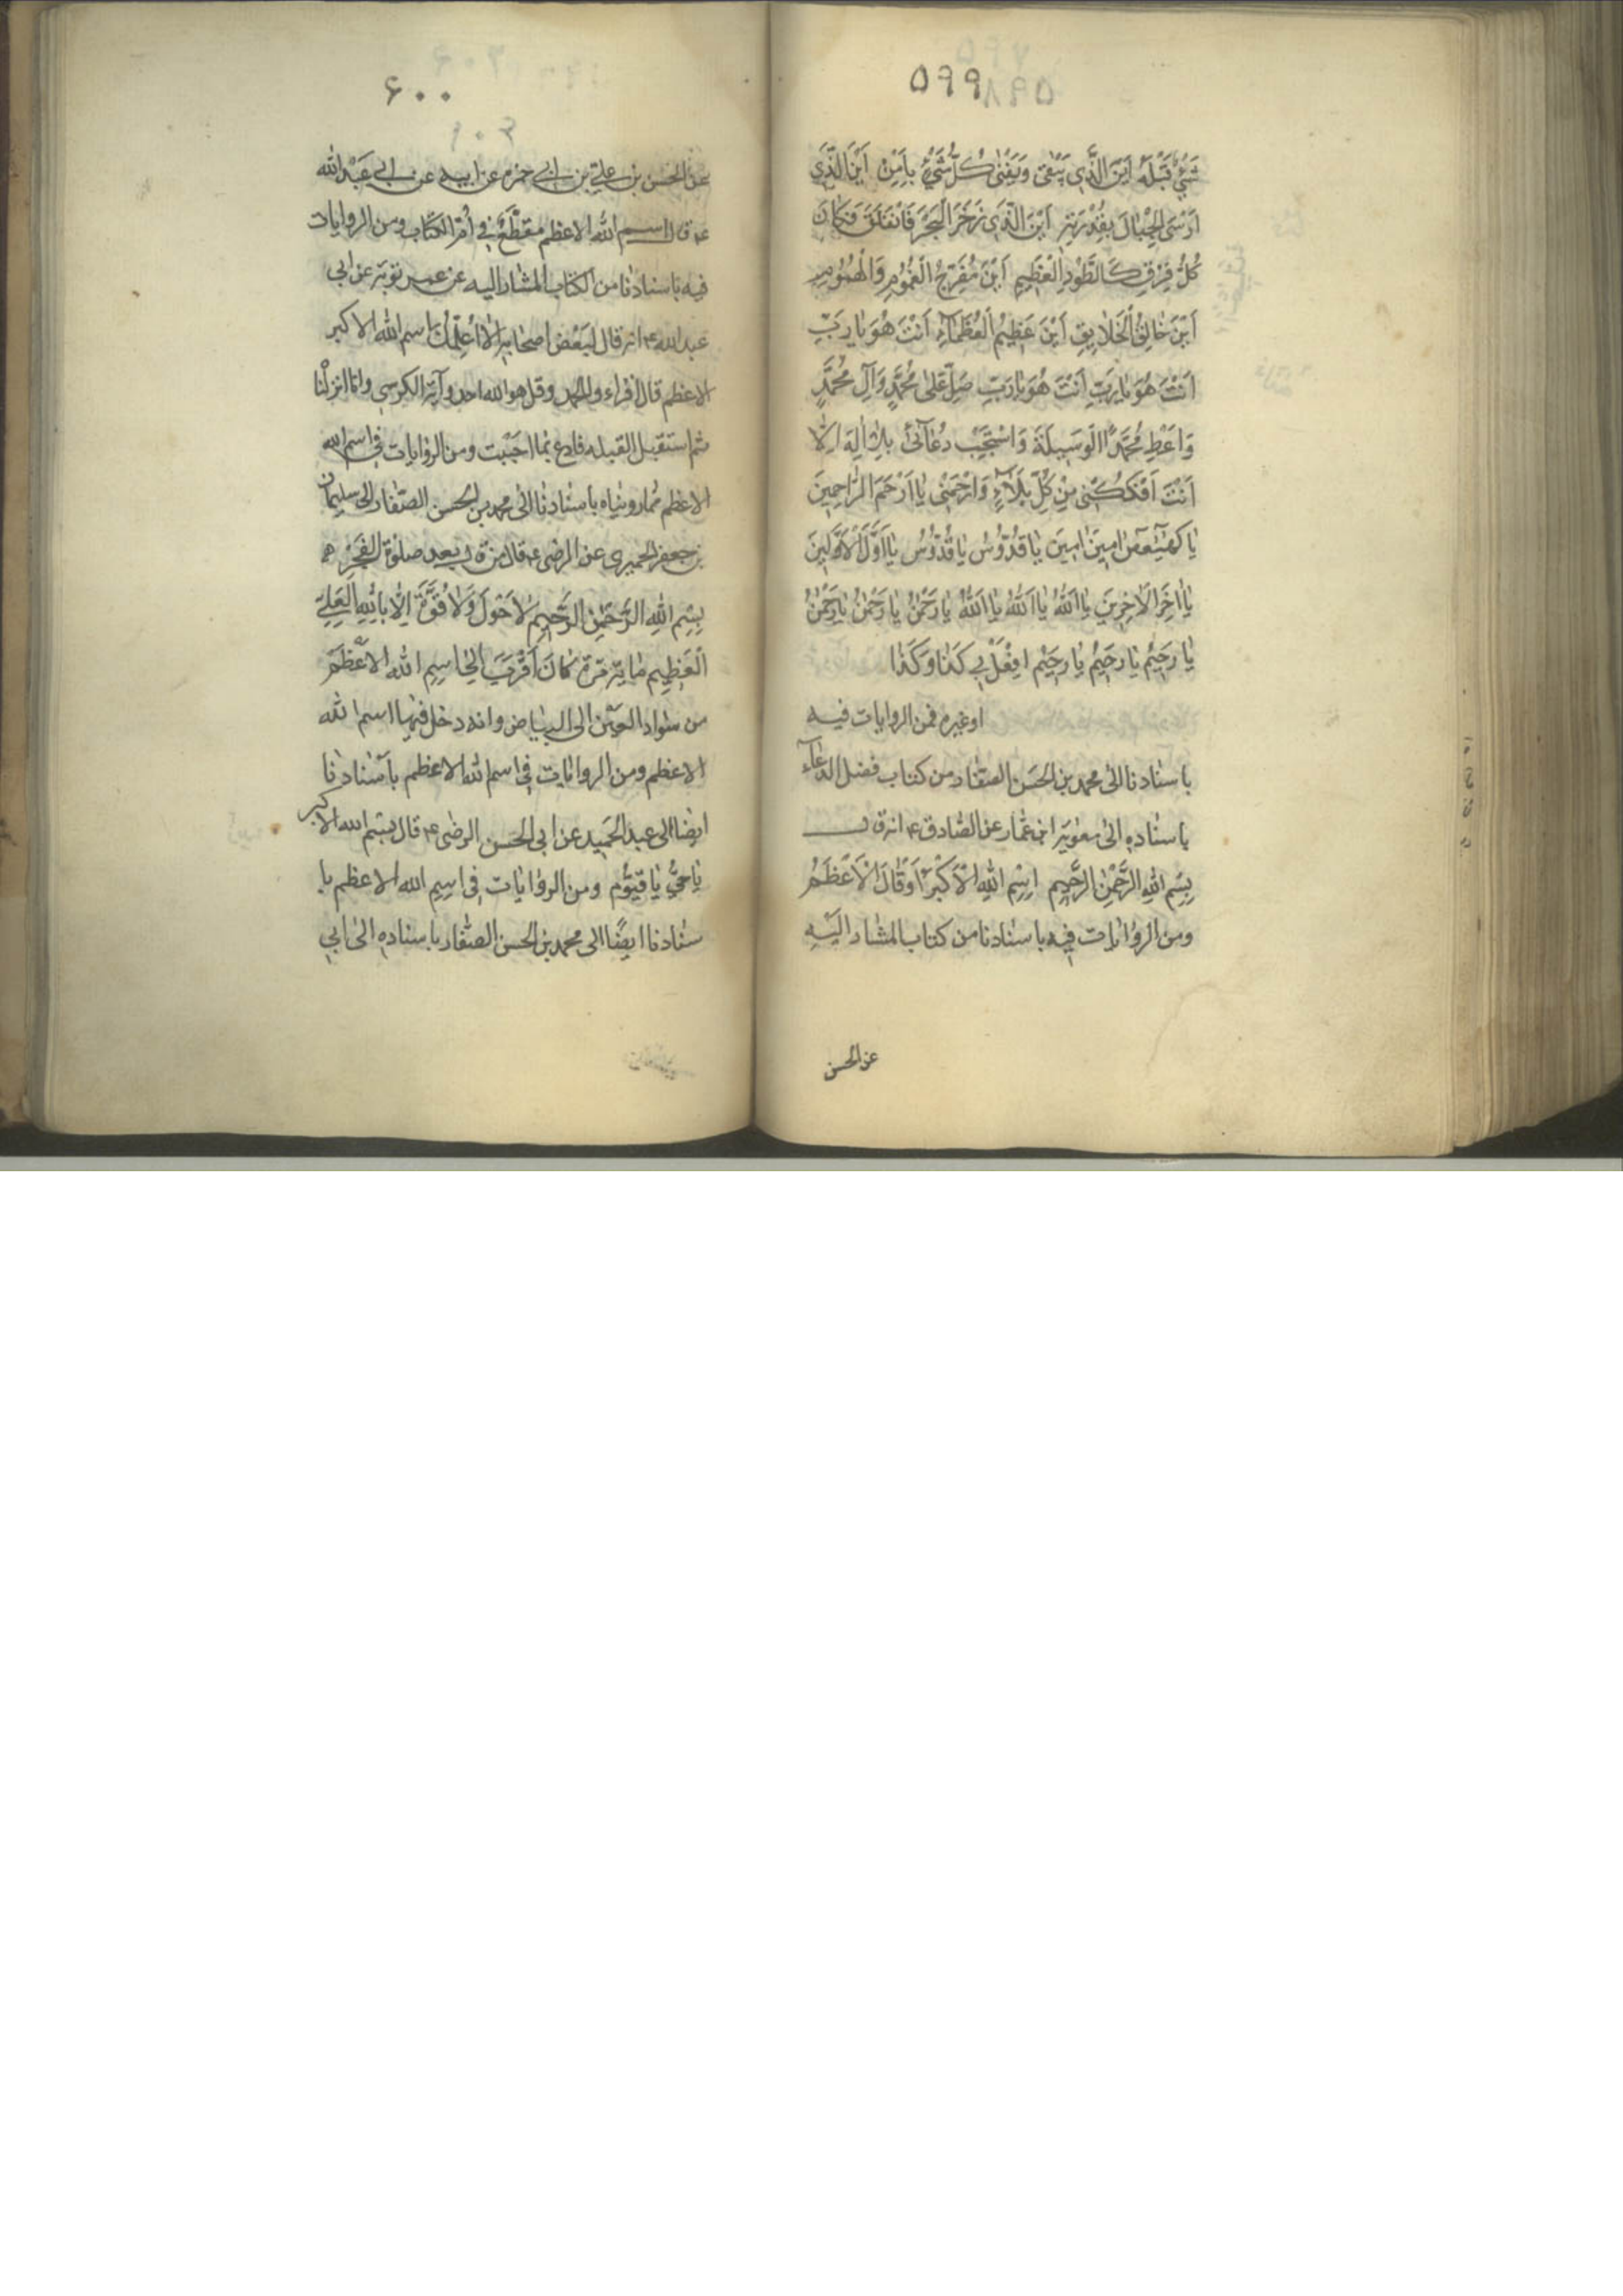 ۵۹۹
شَيْءٍ قَبْلَهُ اَيْنَ الَّذِي يَبْقىٰ وَيَفْنىٰ كُلُّ شَيْءٍ بِاَمْرِهِ اَيْنَ الَّذِي
اَرْسَى الْجِبٰالَ بِقُدْرَتِهِ اَيْنَ الَّذِي زَخَرَ الْبَحْرَ فَانْفَلَقَ فَكٰانَ
كُلُّ فِرْقٍ كَالطَّوْدِ الْعَظِيمِ اَيْنَ مُفَرِّجُ الْغُمُومِ وَالْهُمُومِ
اَيْنَ خٰالِقُ الْخَلٰايِقِ اَيْنَ عَظِيمُ الْعُظَمٰاءِ اَنْتَ هُوَ يٰا رَبِّ
اَنْتَ هُوَ يٰا رَبِّ اَنْتَ هُوَ يٰا رَبِّ صَلِّ عَلىٰ مُحَمَّدٍ وَآلِ مُحَمَّدٍ
وَاَعْطِ مُحَمَّدًا الْوَسِيلَةَ وَاسْتَجِبْ دُعٰآئي بِلٰا اِلٰهَ اِلّٰا
اَنْتَ اَفْكُكْنِي مِنْ كُلِّ بَلٰآءٍ وَارْحَمْنِي يٰا اَرْحَمَ الرّٰاحِمِينَ
يٰا كهيعص امِينَ امِينَ يٰا قُدُّوسُ يٰا قُدُّوسُ يٰا اَوَّلَ الْاَوَّلِينَ
يٰا اخِرَ الْاخِرِينَ يٰا اَللهُ يٰا اَللهُ يٰا اَللهُ يٰا رَحْمٰنُ يٰا رَحْمٰنُ يٰا رَحْمٰنُ
يٰا رَحِيمُ يٰا رَحِيمُ يٰا رَحِيمُ افْعَلْ بِي كَذٰا وَكَذٰا
او غيره فمن الروايات فيه
باسنادنا الى محمد بن الحَسَن الصفّار من كتاب فضل الدعآء
باسناده الى معوية ابن عمّار عن الصّادق ع انه ق
بِسْمِ اللهِ الرَّحْمٰنِ الرَّحِيمِ اِسْمِ اللهِ الْاَكْبَر اَوْ قٰالَ الْاَعْظَمُ
ومن الروايات فيه باسنادنا من كتاب المشار اِلَيْهِ
عن الحسن
۶۰۰
عن الحسن بن علي بن ابي حمزه عن ابيه عن ابي عَبْد الله
ع قال اسم الله الاعظم مقطّع في اُمّ الكتاب ومن الروايات
فيه باسنادنا من الكتاب المشار اليه عن عمر بن توبة عن ابي
عبد الله ع انه قال لبعض اصحابه الا اُعلّمك اسم الله الاكبر
الاعظم قال اقراء والحمد وقل هو الله احد وآية الكرسي وانا انزلنا
ثم استقبل القبله فادع بما احببت ومن الروايات في اسم الله
الاعظم مما رويناه باسنادنا الى محمد بن الحسن الصّفار الى سليمان
بن جعفر الحميري عن الرضي ع قال من ق بعد صلوة الفجر
بِسْمِ اللهِ الرَّحْمٰنِ الرَّحِيمِ لاٰ حَوْلَ وَلاٰ قُوَّةَ اِلّٰا بِاللهِ الْعَلِيِّ
الْعَظِيمِ مٰاية مَرّة كٰانَ اَقْرَبَ اِلى اسمِ الله الاعظم
من سواد العين الى البياض وانه دخل فيها اسم الله
الاعظم ومن الروايات في اسم الله الاعظم باسنادنا
ايضا الى عبد الحميد عن ابى الحسن الرضى ع قال بسم الله الاكبر
يٰا حيُّ يٰا قيّوم ومن الروايات في اسم الله الاعظم با
سنادنا ايضًا الى محمد بن الحسن الصفّار باسناده الى ابي